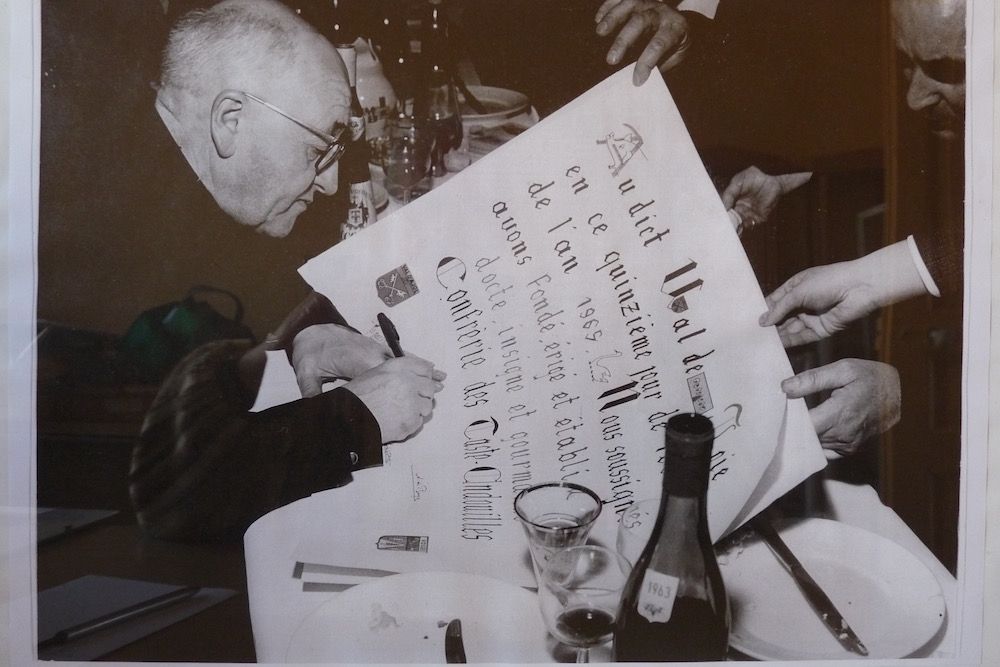 Au dict Val de Joie
en ce quinzième jour de
de l'an 1965. Nous soussignés
avons Fondé, érigé et établi
docte, insigne et
Confrérie des Taste Andouilles
1963